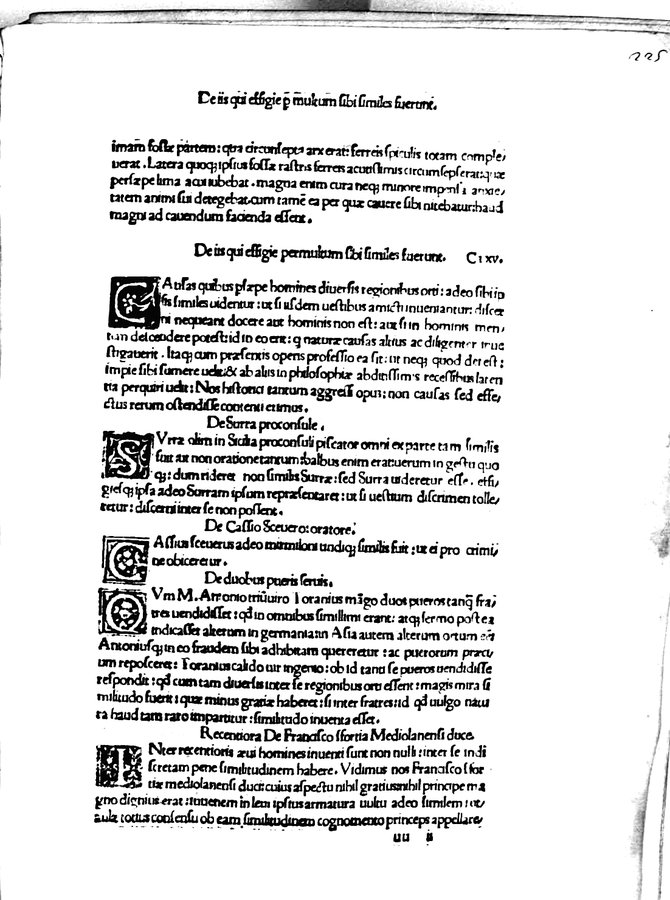 225
De iis qui effigie p̱ multum sibi similes fuerunt.
imam fossæ partem: qua circunsepta arx erat: ferreis spiculis totam comple/
uerat. Latera quoq; ipsius fossæ rastris ferreis acutissimis circumsepserat: quæ
persæpe lima acui iubebat. magna enim cura neq; minore impensa anxie/
tatem animi sui detegebat. cum tamē ea per quæ cauere sibi nitebatur: haud
magni ad cauendum facienda essent.
De iis qui effigie permultum sibi similes fuerunt. C lxv.
CAusas quibus psæpe homines diuersis regionibus orti: adeo sibi ip
sis similes uidentur: ut si iisdem uestibus amicti inueniantur: discer
ni nequeant docere aut hominis non est: aut si in hominis men/
tem descendere potest: id in eo erit: q naturæ causas altius ac diligenter inue
stigauerit. Itaq; cum præsentis operis professio ea sit: ut neq; quod deest:
impie sibi sumere uelit: & ab aliis in philosophiæ abditissimis recessibus laten
tia perquiri uelit: Nos historici tantum aggressi opus: non causas sed effe/
ctus rerum ostendisse contenti erimus.
De Surra proconsule.
SVrræ olim in Sicilia proconsuli piscator omni ex parte tam similis
fuit aut non oratione tantum: balbus enim erat uerum in gestu quo
q;: dum rideret non similis Surræ: sed Surra uideretur esse. effi/
giesq; ipsa adeo Surram ipsum repræsentaret: ut si uestium discrimen tolle/
retur: discerni inter se non possent.
De Cassio Sceuero: oratore.
CAssius sceuerus adeo mirmiloni undiq; similis fuit: ut ei pro crimi/
ne obiceretur.
De duobus pueris seruis.
CVm M. Antonio triūuiro Toranius māgo duos pueros tanq̄ fra/
tres uendidisset: qd in omnibus simillimi erant: atq; sermo postea
indicasset alterum in germania: in Asia autem alterum ortum eē:
Antoniusq; in eo fraudem sibi adhibitam quereretur: ac puerorum præci/
um reposceret: Toranius calido uir ingenio: ob id tanti se pueros uendidisse
respondit: qd cum tam diuersis inter se regionibus orti essent: magis mira si
militudo fuerit: quæ minus gratiæ haberet: si inter fratres: id qd uulgo natu
ra haud tam raro impartitur: similitudo inuenta esset.
Recentiora De Francisco sfortia Mediolanensi duce.
INter recentioris æui homines inuenti sunt non nulli: inter se indi
scretam pene similitudinem habere. Vidimus nos Francisco sfor
tiæ mediolanensi duci: cuius aspectu nihil gratius: nihil principe ma
gno dignius erat: iuuenem in len ipsius armatura uultu adeo similem: ut
aula totius consensu ob eam similitudinem cognomento princeps appellare/
uu ii